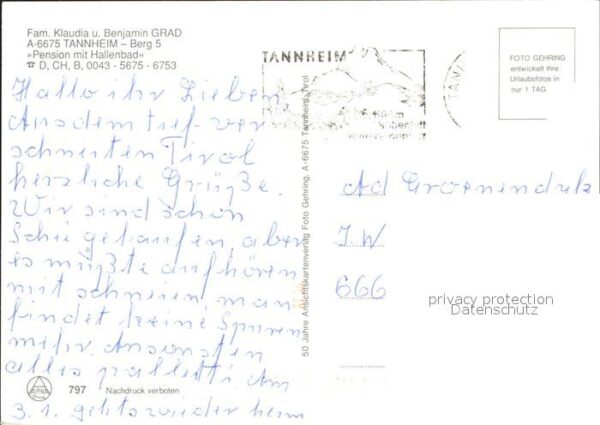 Fam. Klaudia u. Benjamin GRAD
A-6675 TANNHEIM – Berg 5
»Pension mit Hallenbad«
☎ D, CH, B, 0043 - 5675 - 6753
TANNHEIM
FOTO GEHRING
entwickelt Ihre
Urlaubsfotos in
nur 1 TAG
Hallo ihr Lieben
Aus dem tief ver
schneiten Tirol
herzliche Grüße.
Wir sind schon
Schi gelaufen, aber
es müßte aufhören
mit schneien, man
findet keine Spuren
mehr. Ansonsten
alles palletti. Am
3. 1. gehts wieder heim
50 Jahre Ansichtskartenverlag Foto Gehring, A-6675 Tannheim/Tirol
Ad Groenendulz
J.W
666
privacy protection
Datenschutz
797 Nachdruck verboten